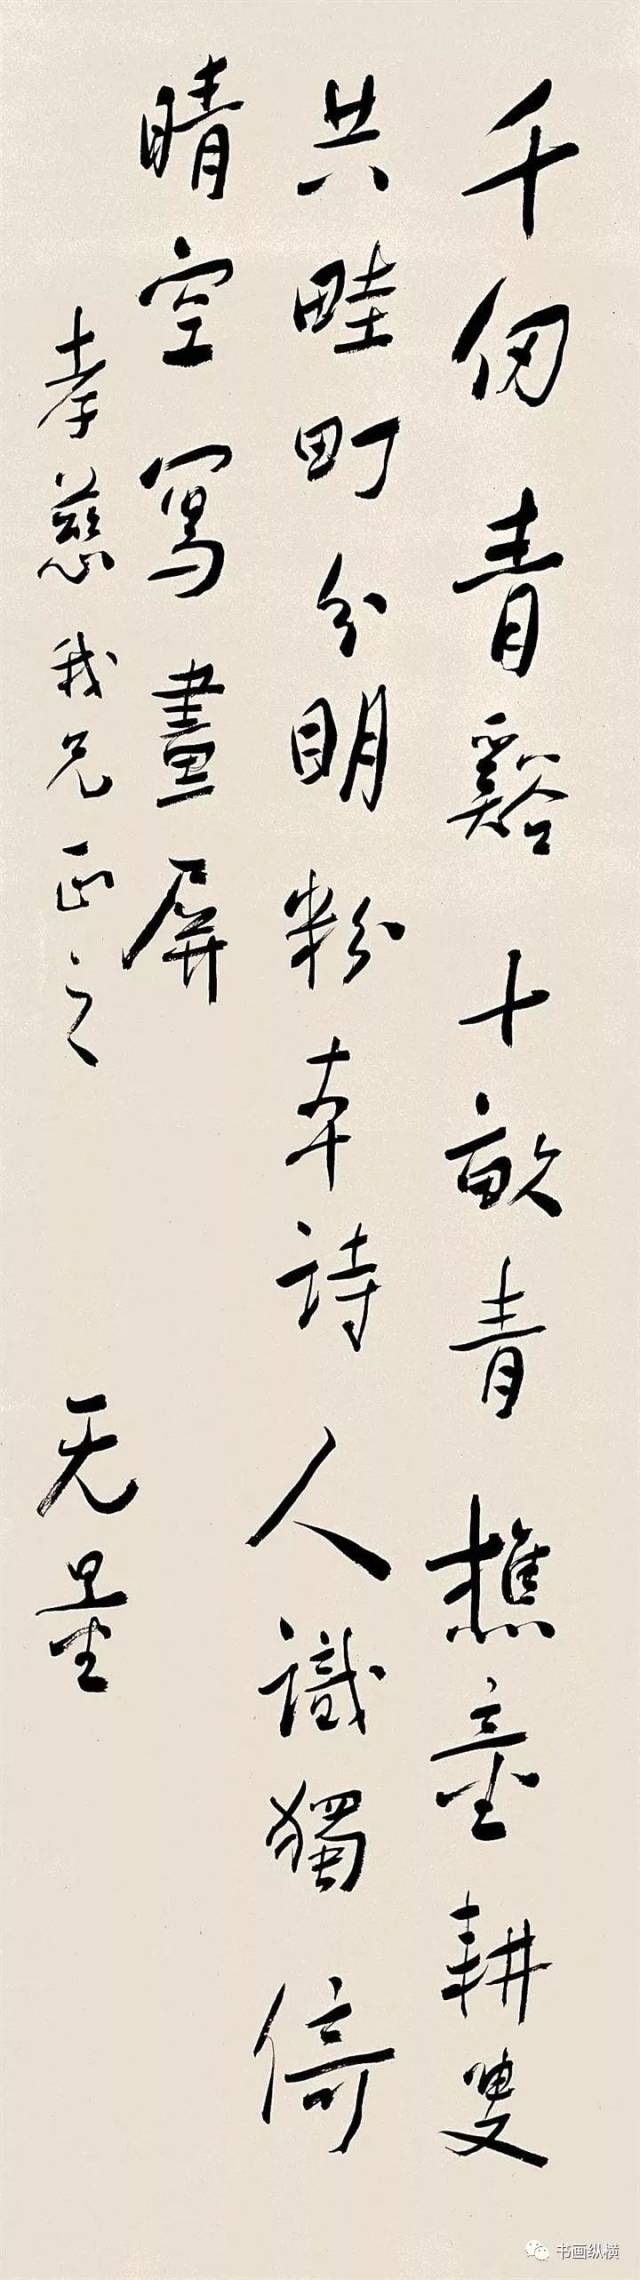 千仞青谿十畝青樵童耕叟
共畦町分明粉本詩人識獨倚
晴空寫畫屏
孝慈我兄正之
无量
书画纵横